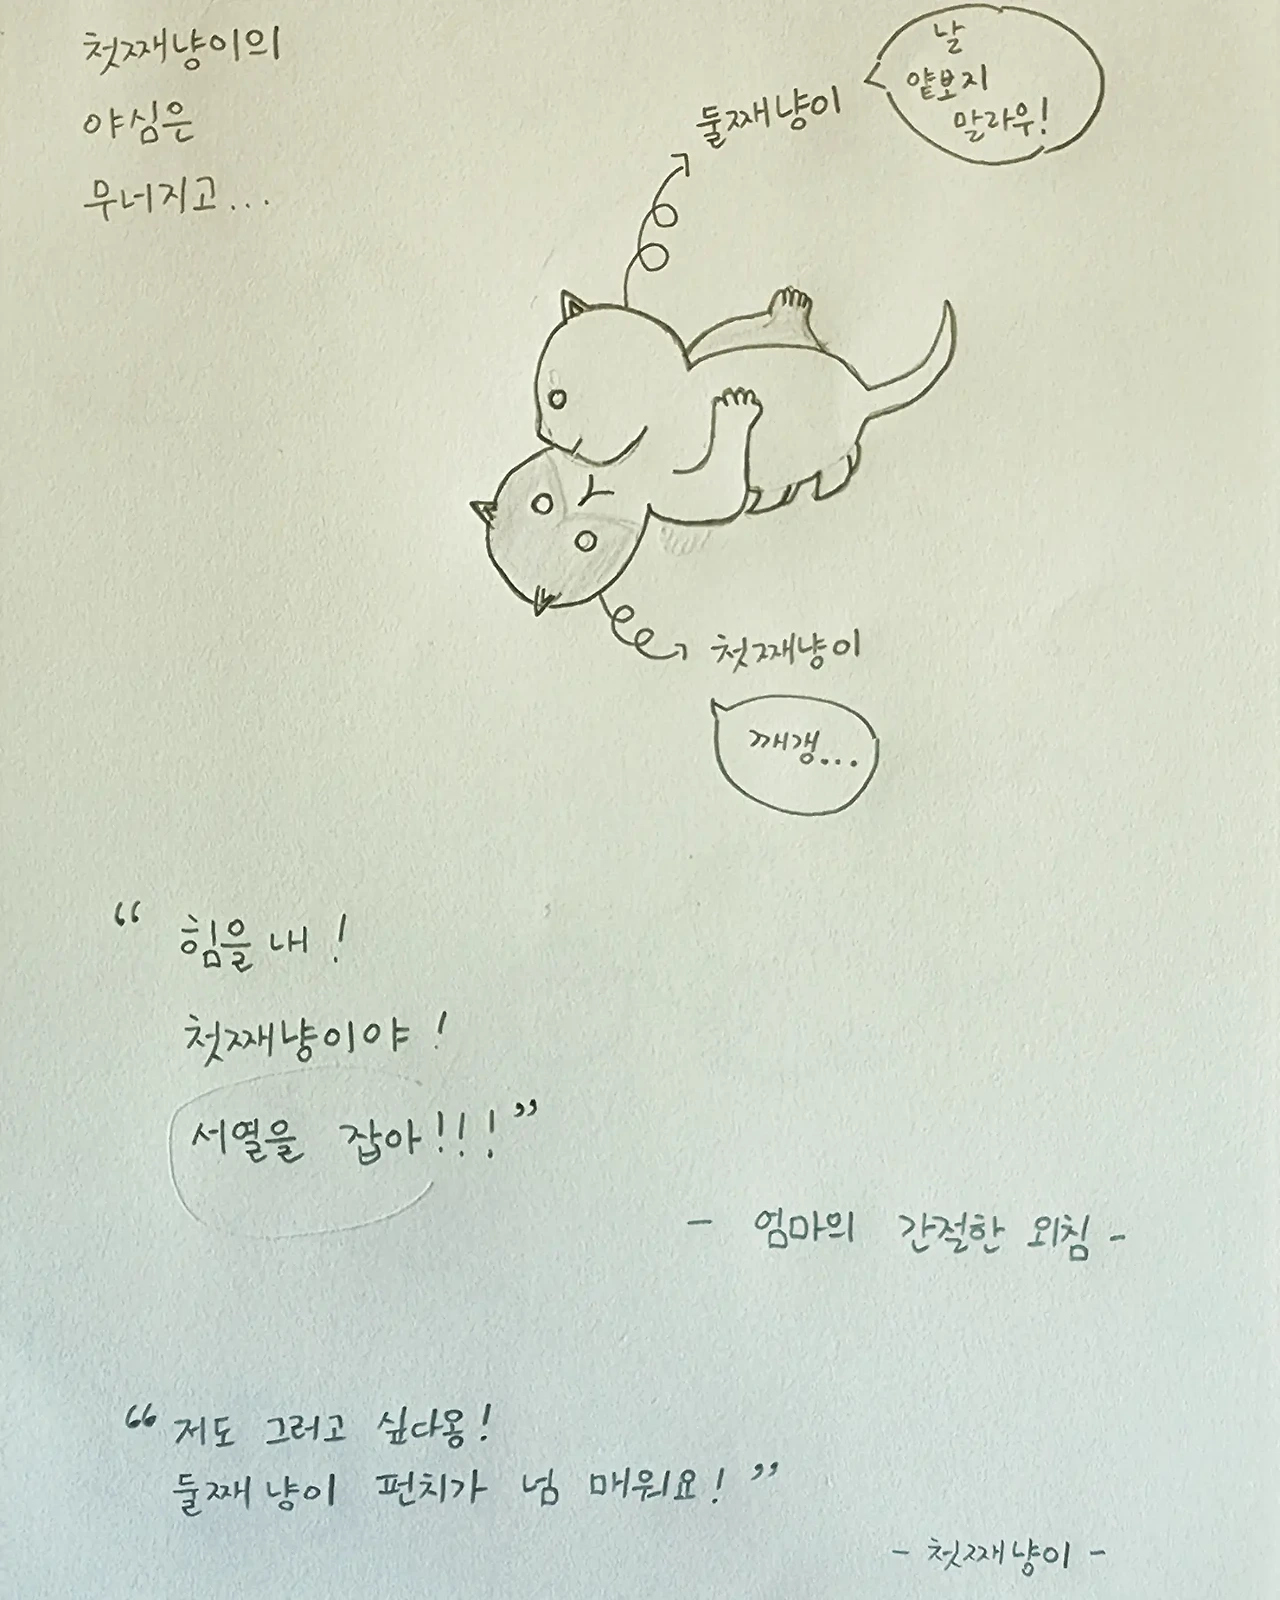 첫째냥이의
야심은
무너지고...
둘째냥이
날
얕보지
말라우!
첫째냥이
깨갱...
“ 힘을 내!
첫째냥이야!
서열을 잡아!!!”
- 엄마의 간절한 외침 -
“ 저도 그러고 싶다옹!
둘째냥이 펀치가 넘 매워요! ”
- 첫째냥이 -